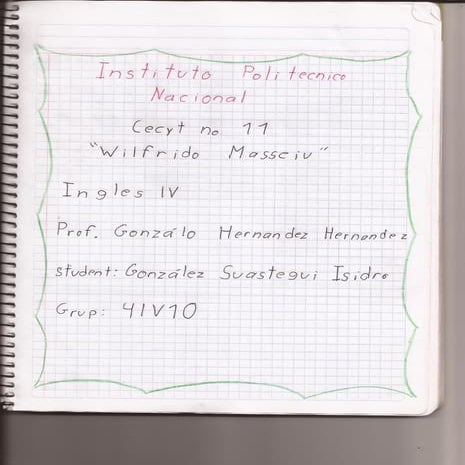 Instituto Politecnico
Nacional
Cecyt no 11
"Wilfrido Massciu"
Ingles IV
Prof. Gonzálo Hernandez Hernandez
student: González Suastegui Isidro
Grup: 4IV10